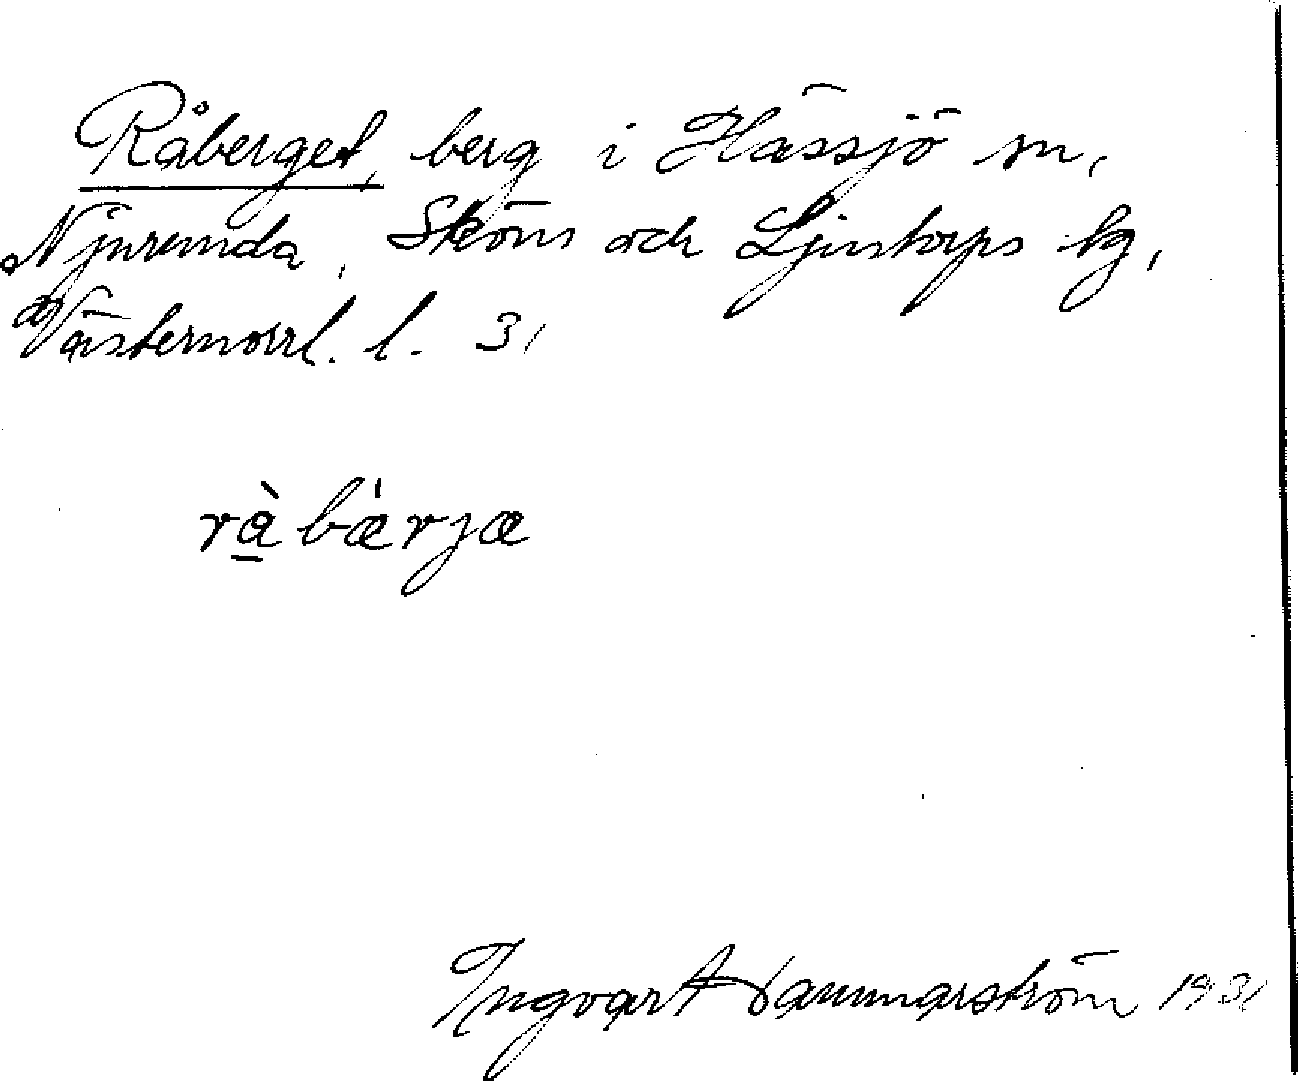 Råberget, berg i Hässjö sn,
Njurunda, Sköns och Ljustorps tg,
Västernorrl. l. 31
rà bǽrjæ
Ingvart Hammarström 1931